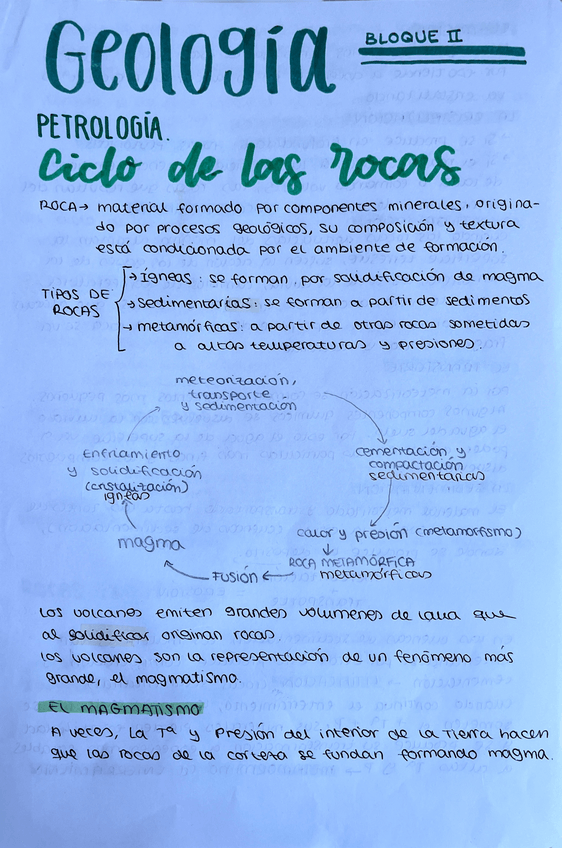 Geología
BLOQUE II
PETROLOGÍA.
Ciclo de las rocas
ROCA → material formado por componentes minerales, origina-
do por procesos geológicos, su composición y textura
está condicionada por el ambiente de formación.
TIPOS DE
ROCAS
→ Ígneas: se forman por solidificación de magma
→ sedimentarias: se forman a partir de sedimentos
→ metamórficas: a partir de otras rocas sometidas
a altas temperaturas y presiones.
meteorización,
transporte
y sedimentación
cementación y
compactación
sedimentarias
calor y presión (metamorfismo)
ROCA METAMÓRFICA
metamórficas
FUSIÓN
magma
Enfriamiento
y solidificación
(cristalización)
ígneas
Los volcanes emiten grandes volúmenes de lava que
al solidificar originan rocas
Los volcanes son la representación de un fenómeno más
grande, el magmatismo.
EL MAGMATISMO
A veces, la Tª y presión del interior de la Tierra hacen
que las rocas de la corteza se fundan formando magma.